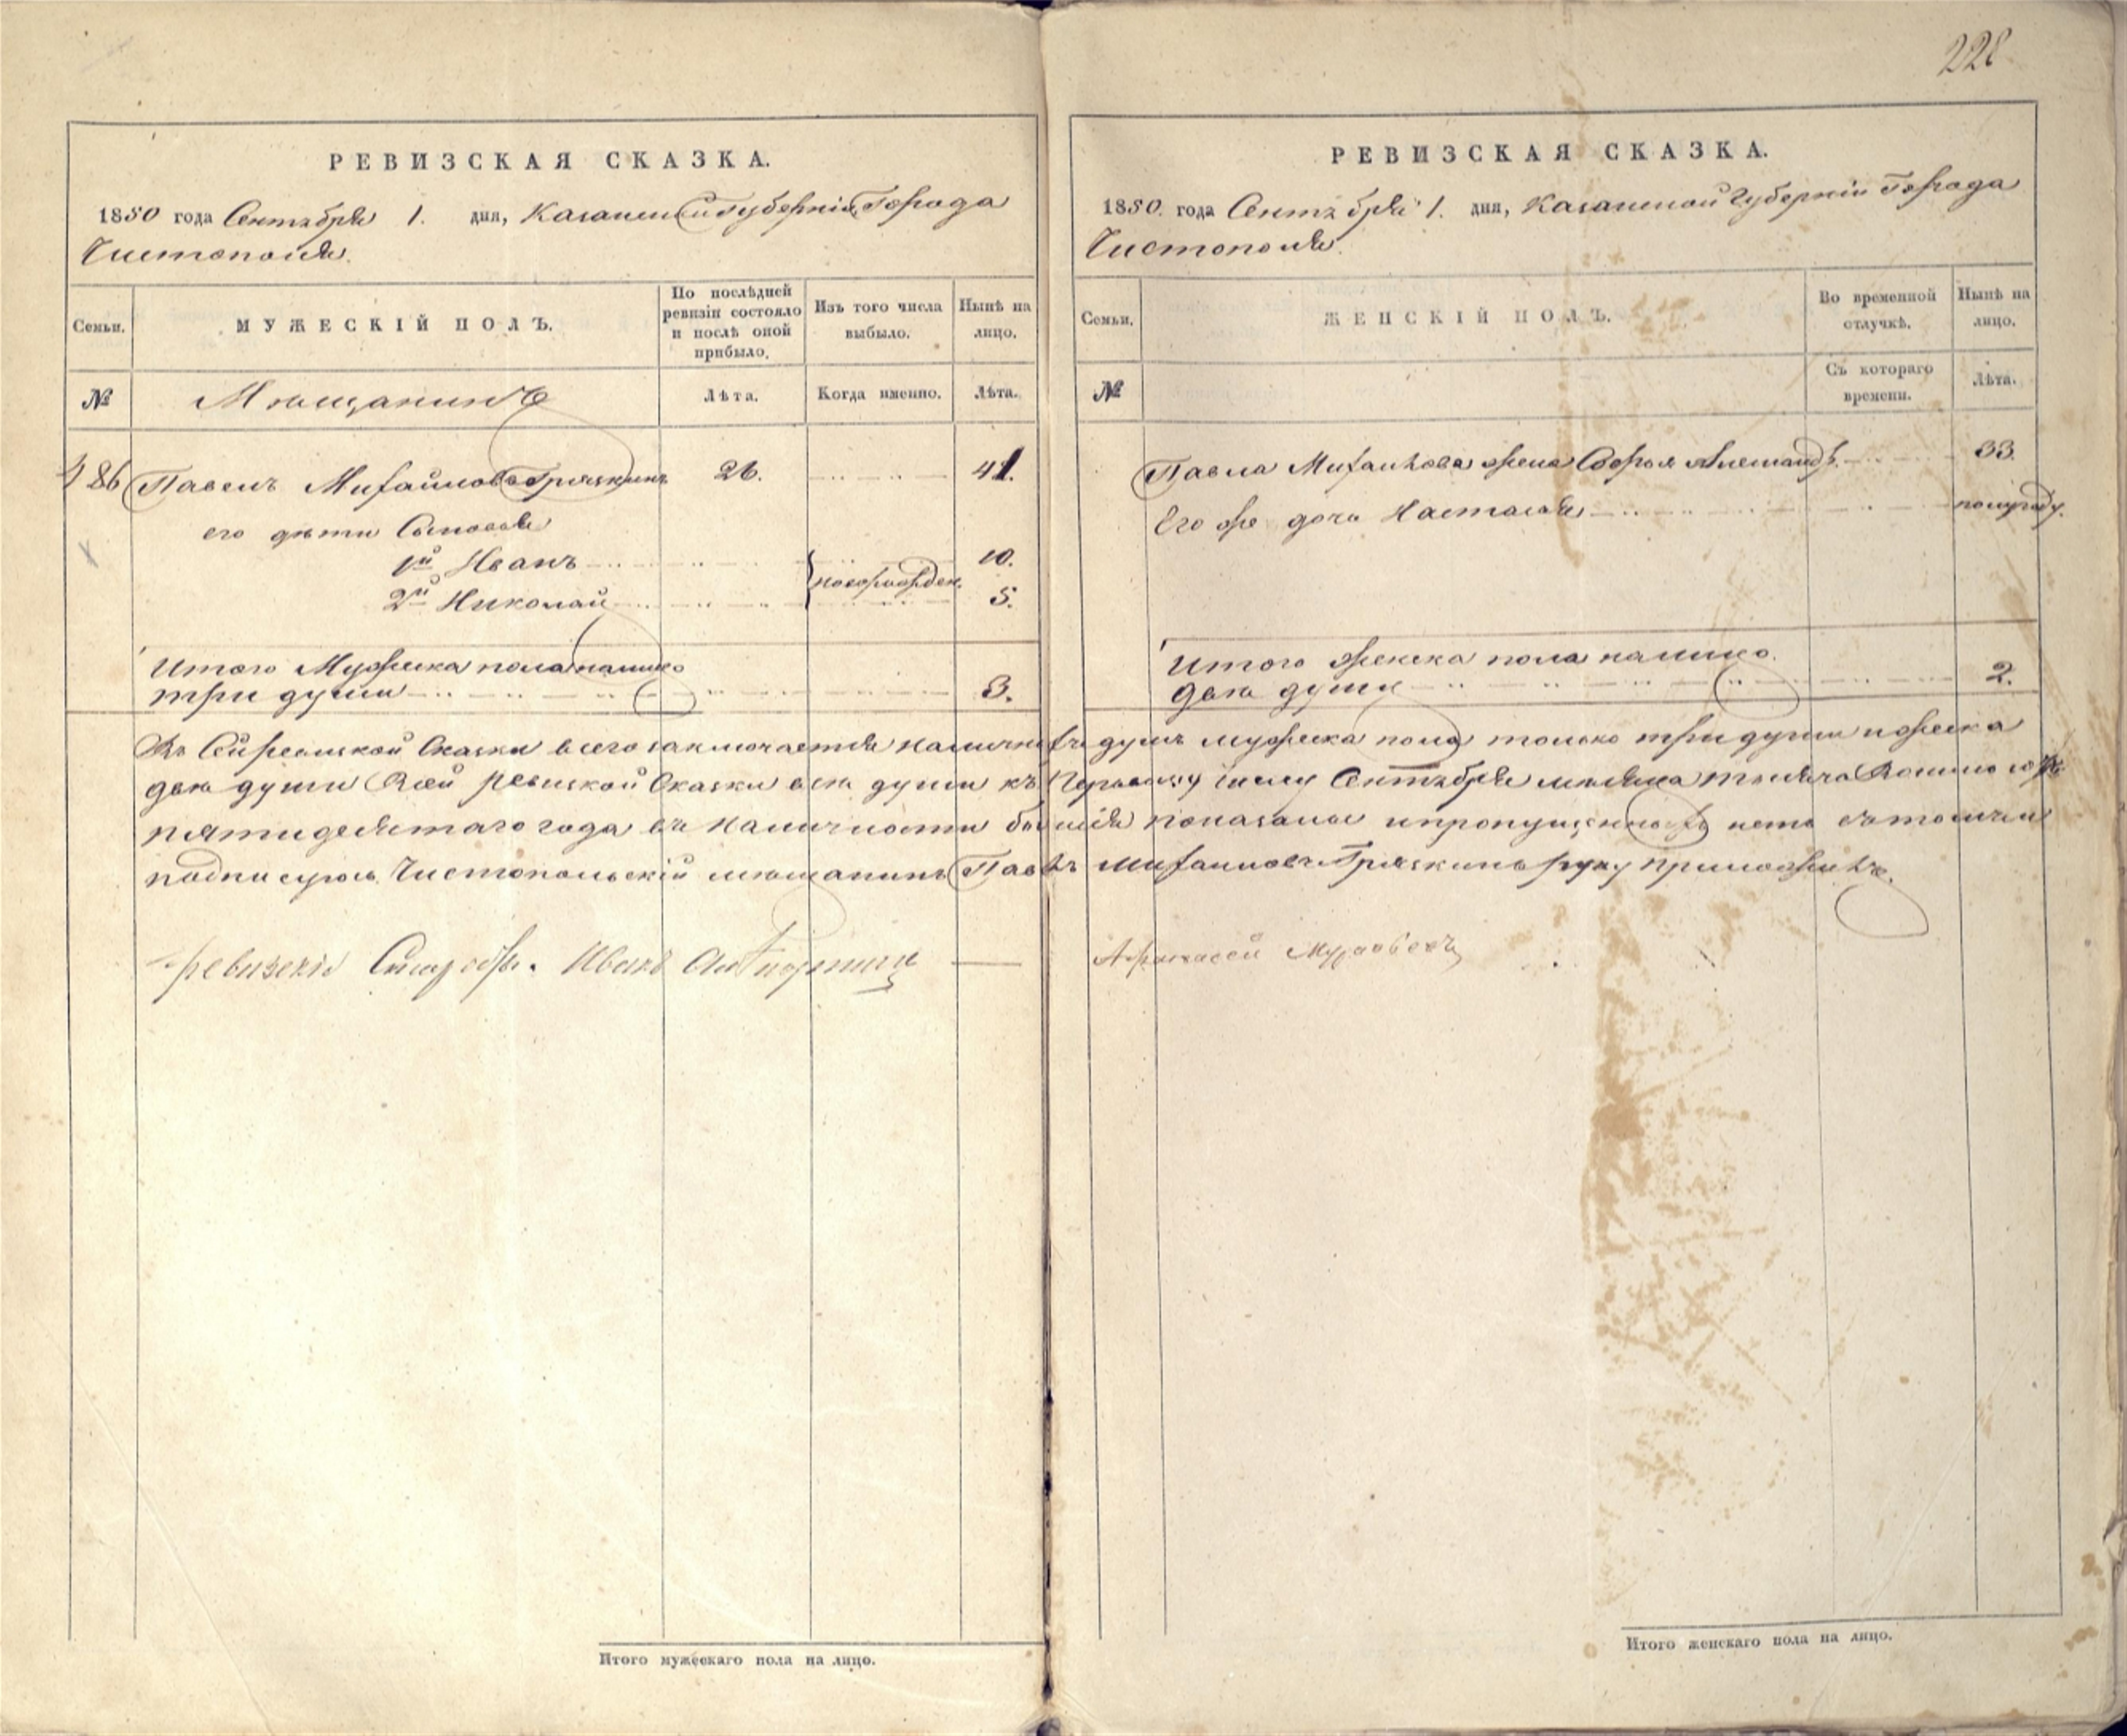 228
РЕВИЗСКАЯ СКАЗКА.
1850 года Сентября 1. дня, Казанской Губерніи Города
Чистополя.
Семьи.
МУЖЕСКІЙ ПОЛЪ.
По послѣдней ревизіи состояло и послѣ оной прибыло.
Изъ того числа выбыло.
Нынѣ на лицо.
№
Мѣщанинъ
Лѣта.
Когда именно.
Лѣта.
486 Павелъ Михайловъ Гряскинъ 26. 41.
его дѣти Сыновья
1й Иванъ 10.
новорожден.
2й Николай 5.
Итого Мужеска пола налицо
три души 3.
РЕВИЗСКАЯ СКАЗКА.
1850. года Сентября 1. дня, Казанской Губерніи Города
Чистополя.
Семьи.
ЖЕНСКІЙ ПОЛЪ.
Во временной отлучкѣ.
Нынѣ на лицо.
№
Съ котораго времени.
Лѣта.
Павла Михайлова жена Софья Александр. 33.
Его же дочь Настасья полугоду.
Итого женска пола налицо.
двѣ души 2.
Въ Сей ревизской Сказки всего заключается наличныхъ душъ мужеска пола только три души и женска
двѣ души Всей ревизской Сказки всѣ души къ Первому числу Сентября мѣсяца тысяча Восимь сотъ
пятидесятаго года въ наличности бывшія показаны и пропущенныхъ нетъ въ томъ и
подписуюсь Чистопольскій мѣщанинъ Павелъ Михайловъ Гряскинъ руку приложилъ.
ревизскія Иванъ
Афанасей
Итого мужескаго пола на лицо.
Итого женскаго пола на лицо.